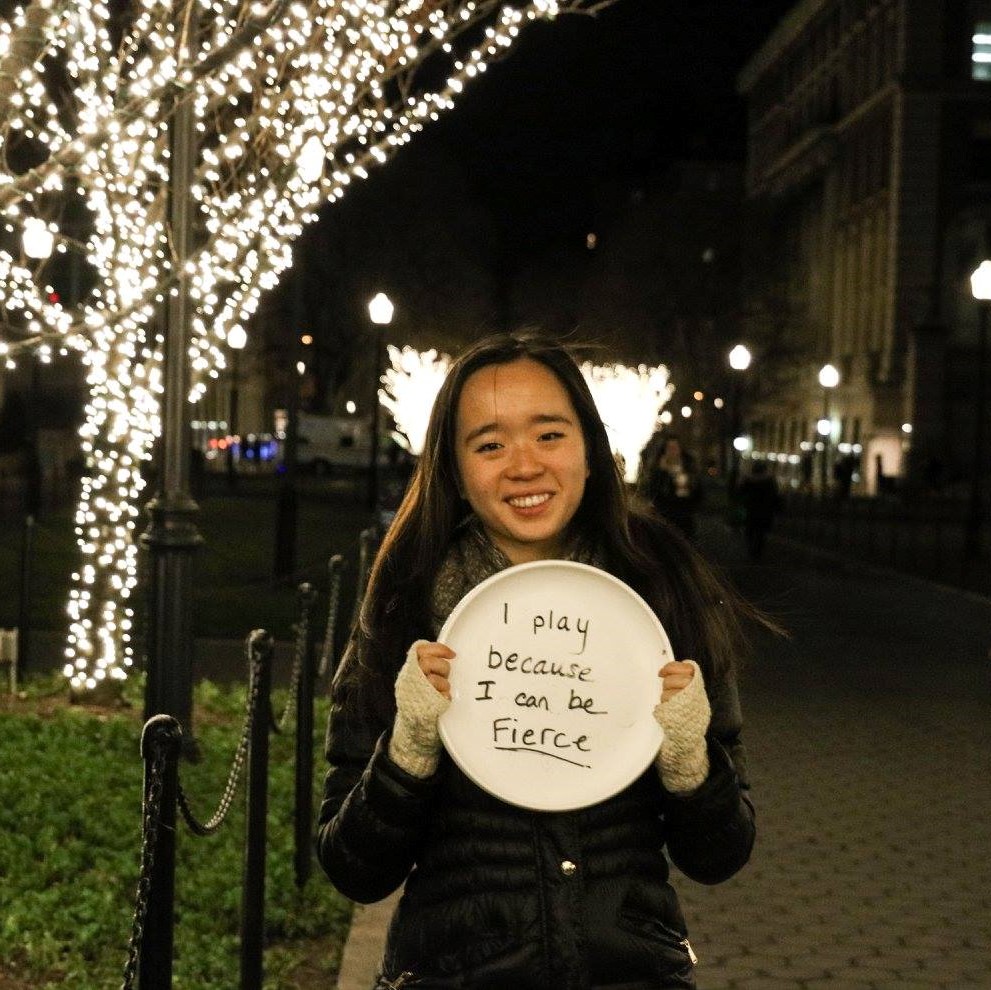 I play
because
I can be
Fierce